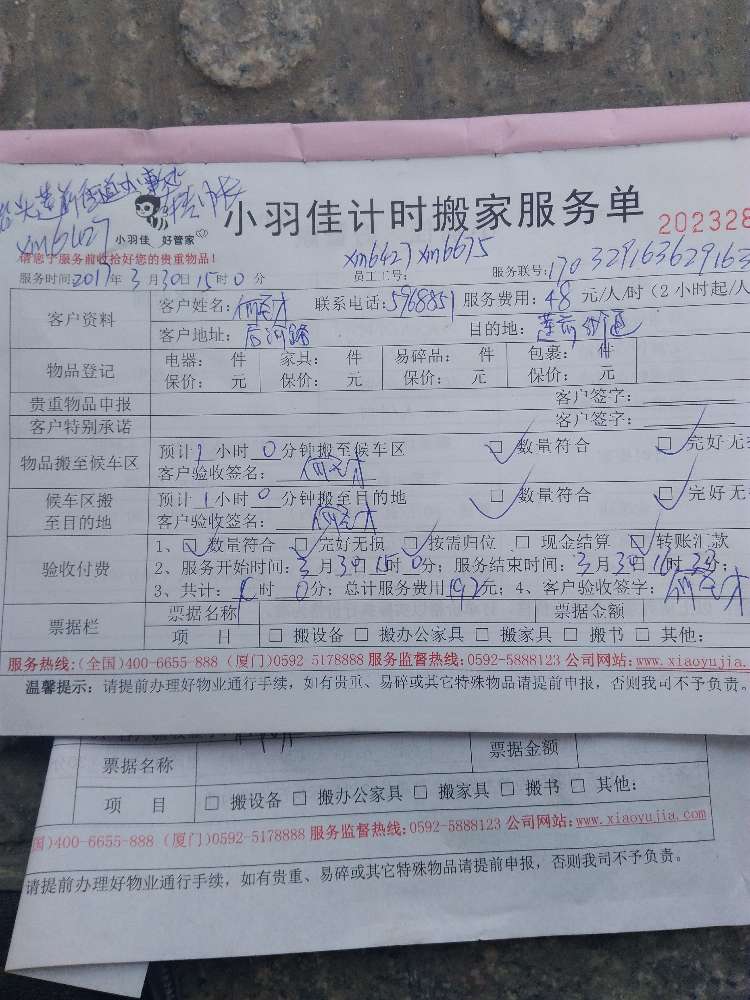 小羽佳 好管家
小羽佳计时搬家服务单 202328
xm6427
xm6427 xm6675
请您于服务前收拾好您的贵重物品!
服务时间:2017年3月30日15时0分 员工工号: 服务联号:170329163629163
客户资料 客户姓名: 联系电话:5968851 服务费用:48元/人/时(2小时起/人
客户地址:后河路 目的地:莲前街道
物品登记 电器: 件 家具: 件 易碎品: 件 包裹: 件
保价: 元 保价: 元 保价: 元 保价: 元
贵重物品申报 客户签字:
客户特别承诺 客户签字:
物品搬至候车区 预计1小时0分钟搬至候车区 □数量符合 □完好无
客户验收签名:
候车区搬至目的地 预计1小时0分钟搬至目的地 □数量符合 □完好无
客户验收签名:
验收付费 1、□数量符合 □完好无损 □按需归位 □现金结算 □转账汇款
2、服务开始时间:3月30日15时0分;服务结束时间:3月30日16时 分;
3、共计: 时0分;总计服务费用192元;4、客户验收签字:
票据栏 票据名称 票据金额
项 目 □搬设备 □搬办公家具 □搬家具 □搬书 □其他:
服务热线:(全国)400-6655-888 (厦门)0592 5178888 服务监督热线:0592-5888123 公司网站:www.xiaoyujia.
温馨提示:请提前办理好物业通行手续,如有贵重、易碎或其它特殊物品请提前申报,否则我司不予负责。
票据名称 票据金额
项 目 □搬设备 □搬办公家具 □搬家具 □搬书 □其他:
国)400-6655-888 (厦门)0592-5178888 服务监督热线:0592-5888123 公司网站:www.xiaoyujia.com
请提前办理好物业通行手续,如有贵重、易碎或其它特殊物品请提前申报,否则我司不予负责。